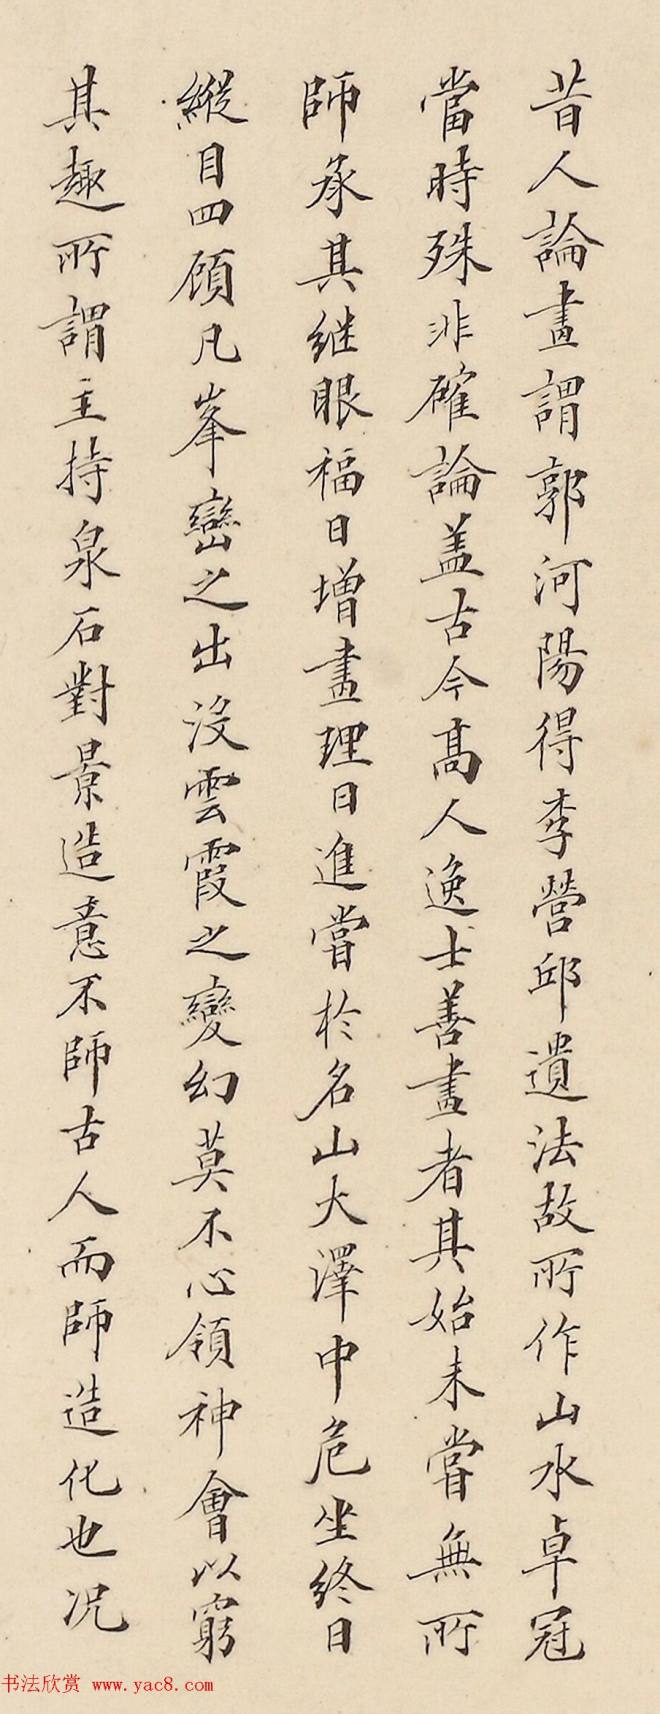 昔人論畫謂郭河陽得李營邱遺法故所作山水卓冠
當時殊非確論盖古今髙人逸士善畫者其始未嘗無所
師承其継眼福日增畫理日進嘗於名山大澤中危坐終日
縱目四顧凡峯巒之出没雲霞之變幻莫不心領神會以窮
其趣所謂主持泉石對景造意不師古人而師造化也况
书法欣赏 www.yac8.com